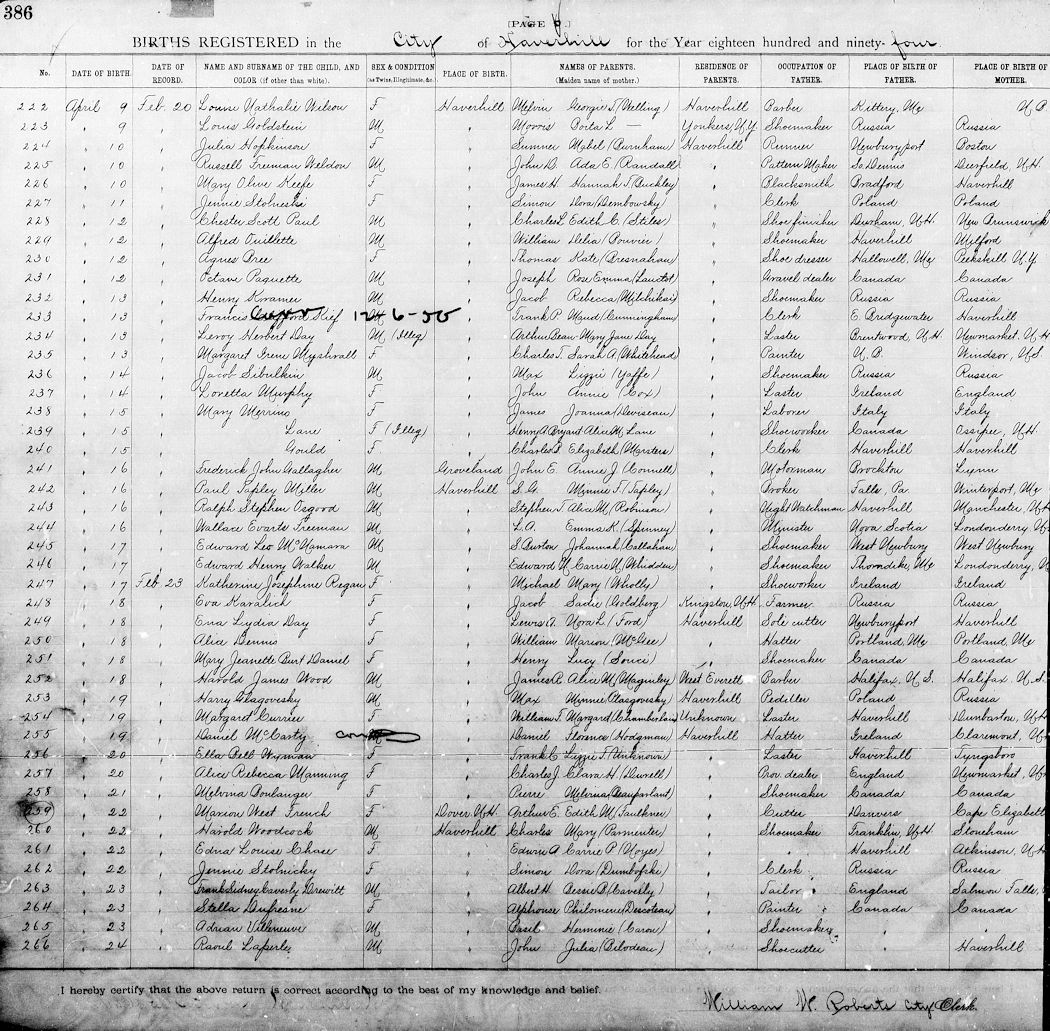 386
[PAGE .]
BIRTHS REGISTERED in the City of Haverhill for the Year eighteen hundred and ninety-four.
No. DATE OF BIRTH. DATE OF RECORD. NAME AND SURNAME OF THE CHILD, AND COLOR (if other than white). SEX & CONDITION (as Twins, Illegitimate, &c.) PLACE OF BIRTH. NAMES OF PARENTS. (Maiden name of mother.) RESIDENCE OF PARENTS. OCCUPATION OF FATHER. PLACE OF BIRTH OF FATHER. PLACE OF BIRTH OF MOTHER.
222 April 9 Feb. 20 Louise Nathalie Wilson F Haverhill Melvin Georgie T. (Welling) Haverhill Barber Kittery, Me N.B.
223 " 9 Louis Goldstein M " Morris Yonkers, N.Y. Shoemaker Russia Russia
224 " 10 Julia Hopkinson F " Sumner Mabel (Burnham) Haverhill Runner Newburyport Boston
225 " 10 Russell Freeman Weldon M " John D. Ada E. (Randall) " Pattern Maker So. Dennis Deerfield, N.H.
226 " 10 Mary Olive Keefe F " James H. Hannah T. (Buckley) " Blacksmith Bradford Haverhill
227 " 11 Jennie F " Simon Dora (Dembowsky) " Clerk Poland Poland
228 " 12 Chester Scott Paul M " Charles L. Edith C. (Stiles) " Shoe finisher Durham, N.H. New Brunswick
229 " 12 Alfred Ouillette M " William Delia " Shoemaker Haverhill Milford
230 " 12 Agnes Bree F " Thomas Kate (Bresnahan) " Shoe dresser Hallowell, Me Peekskill N.Y.
231 " 12 Octave Paquette M " Joseph Rose Emma " Gravel dealer Canada Canada
232 " 13 Henry Kramer M " Jacob Rebecca " Shoemaker Russia Russia
233 " 13 Francis Kief 12-6-55 " Frank P. Maud (Cunningham) " Clerk E. Bridgewater Haverhill
234 " 13 Leroy Herbert Day M (Illeg) " Arthur Bean Mary Jane Day " Laster Brentwood, N.H. Newmarket, N.H.
235 " 13 Margaret Irene Myshrall F " Charles T. Sarah A. (Whitehead) " Painter N.B. Windsor, N.S.
236 " 14 Jacob Sibulkin M " Max Lizzie (Yoffe) " Shoemaker Russia Russia
237 " 14 Loretta Murphy F " John Annie (Cox) " Laster Ireland England
238 " 15 Mary Merrino F " James Joanna " Laborer Italy Italy
239 " 15 Lane F (Illeg) " Henry A. Bryant Alice M. Lane " Shoeworker Canada Ossipee, N.H.
240 " 15 Gould F. " Charles S. Elizabeth (Marsters) " Clerk Haverhill Haverhill
241 " 16 Frederick John Gallagher M Groveland John E. Annie J. (Connell) " Motorman Brockton Lynn
242 " 16 Paul Tapley Miller M Haverhill S.G. Minnie T. (Tapley) " Broker Falls, Pa. Winterport, Me
243 " 16 Ralph Stephen Osgood M " Stephen T. Alice M. (Robinson) " Night Watchman Haverhill Manchester, N.H.
244 " 16 Wallace Evarts Freeman M " L.A. Emma K. (Spinney) " Minister Nova Scotia Londonderry, N.S.
245 " 17 Edward Leo McNamara M " S. Burton Johannah (Callahan) " Shoemaker West Newbury West Newbury
246 " 17 Edward Henry Walker M " Edward N. Carrie N. (Whidden) " Shoemaker Thorndike, Me Londonderry,
247 " 17 Feb. 23 Katherine Josephine Regan F " Michael Mary (Wholly) " Shoeworker Ireland Ireland
248 " 18 Eva Kavalich F " Jacob Sadie (Goldberg) Kingston, N.H. Farmer Russia Russia
249 " 18 Ena Lydia Day F " Lewis A. Nora L. (Ford) Haverhill Sole cutter Newburyport Haverhill
250 " 18 Alice Dennis F " William Marion (McGee) " Hatter Portland, Me Portland, Me
251 " 18 Mary Jeanette Burt Daniel F " Henry Lucy (Souci) " Shoemaker Canada Canada
252 " 18 Harold James Wood M " James R. Alice M. (Maguley) West Everett Barber Halifax, N.S. Halifax, N.S.
253 " 19 Harry Glagovsky M " Max Minnie (Glasgovsky) Haverhill Pedller Poland Russia
254 " 19 Margaret Currier F " William T. Margard (Chamberlain) Unknown Laster Haverhill Dunbarton, N.H.
255 " 19 Daniel McCarty " Daniel Florence (Hodgman) Haverhill Hatter Ireland Claremont, N.H.
256 " 20 Ella Bell Wyman F " Frank C. Lizzie T. (Unknown) " Laster Haverhill Tyngsboro
257 " 20 Alice Rebecca Manning F " Charles J. Clara H. (Durell) " Prov. dealer England Newmarket, N.H.
258 " 21 Melvina Boulanger F " Pierre Melvina (Beauparlant) " Shoemaker Canada Canada
259 " 22 Marion West French F Dover N.H. Arthur E. Edith M. (Faulkner) " Cutter Danvers Cape Elizabeth
260 " 22 Harold Woodcock M Haverhill Charles Mary (Parmenter) " Shoemaker Franklin, N.H. Stoneham
261 " 22 Edna Louise Chase F " Edwin A. Carrie P. (Noyes) " " Haverhill Atkinson, N.H.
262 " 22 Jennie Stolnicky F " Simon Dora (Dumbofski) " Clerk Russia Russia
263 " 23 Frank Sidney Caverly Drewitt M " Albert H. Bessie B. (Caverly) " Tailor England Salmon Falls,
264 " 23 Stella Dufresne F " Alphonse Philomene (Descoteau) " Painter Canada Canada
265 " 23 Adrian Villeneuve M " Basil Herminie (Caron) " Shoemaker " "
266 " 24 Raoul Laperle M " John Julia (Bilodeau) " Shoecutter " Haverhill
I hereby certify that the above return is correct according to the best of my knowledge and belief.
William W. Roberts City Clerk.